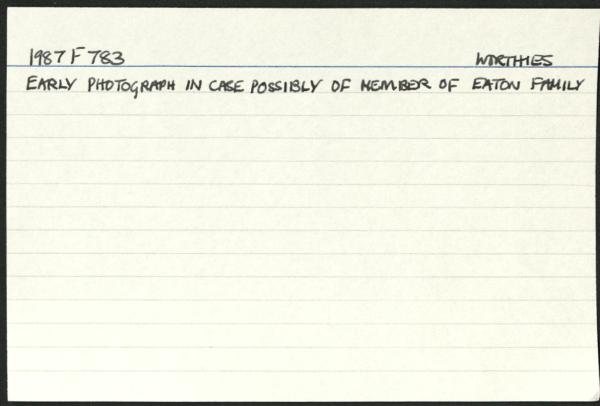 1987 F 783 WORTHIES
EARLY PHOTOGRAPH IN CASE POSSIBLY OF MEMBER OF EATON FAMILY